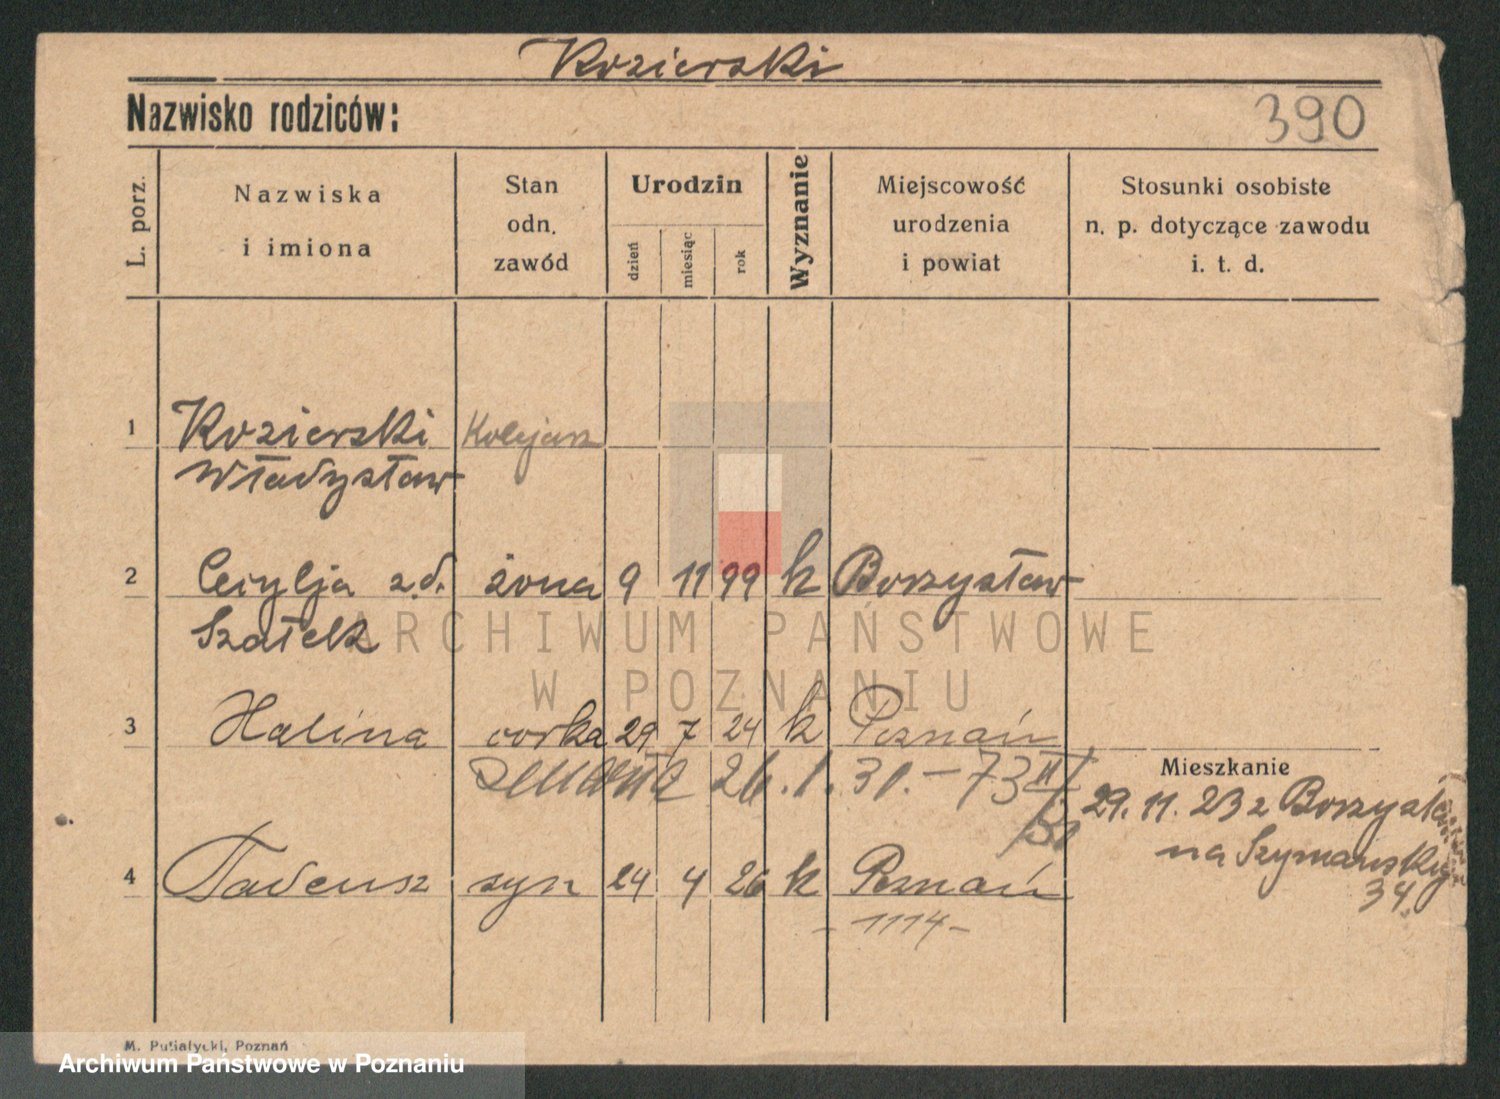 Kozierski
Nazwisko rodziców:
390
L. porz.
Nazwiska
i imiona
Stan
odn.
zawód
Urodzin
dzień
miesiąc
rok
Wyznanie
Miejscowość
urodzenia
i powiat
Stosunki osobiste
n. p. dotyczące zawodu
i. t. d.
1 Kozierski Kolejarz
Władysław
2 Cecylja z.d. żona 9 11 99 k Borzysław
Szałek
ARCHIWUM PAŃSTWOWE
W POZNANIU
3 Halina corka 29 7 24 k Poznań
26.1.31. - 73
Mieszkanie
29. 11. 23 z Borzysła
na Szymańskiego
34.
4 Tadeusz syn 24 4 26 k Poznań
- 1114 -
M. Putiatycki, Poznań
Archiwum Państwowe w Poznaniu